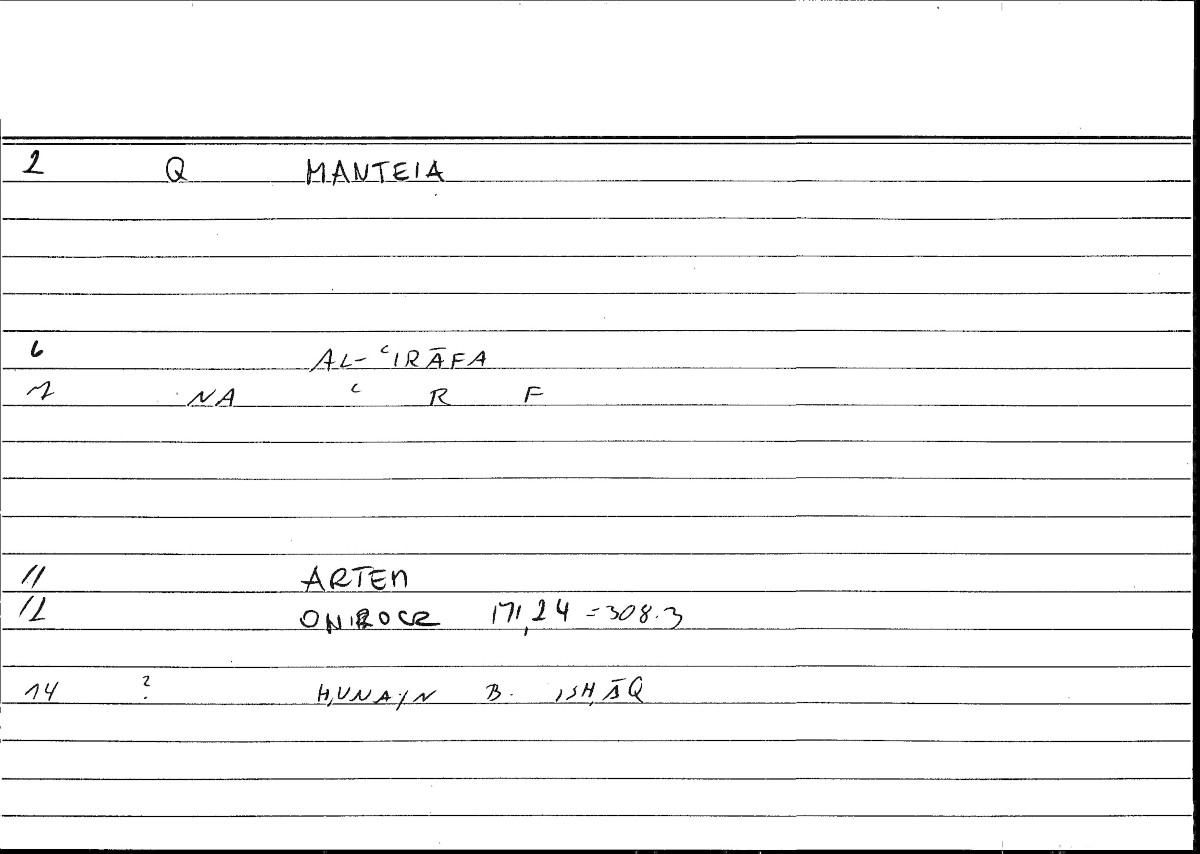 2 Q MANTEIA
6 AL-ʿIRĀFA
7 NA ʿ R F
11 ARTEM
12 ONIROCR 171,24 =308.3
14 ? ḤUNAYN B. ISḤĀQ